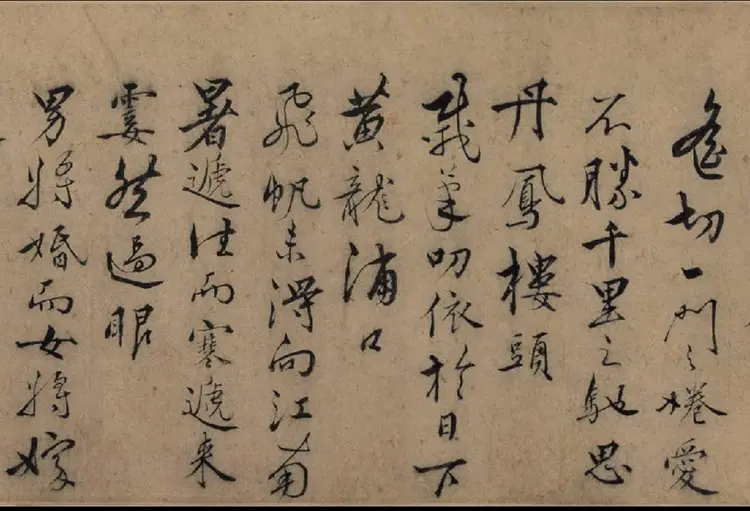 切一門之惓愛
不勝千里之馳思
丹鳳樓頭
載筆叨依於日下
黃龍浦口
飛帆未得向江南
暑遞往而寒遞来
霎然過眼
男將婚而女將嫁